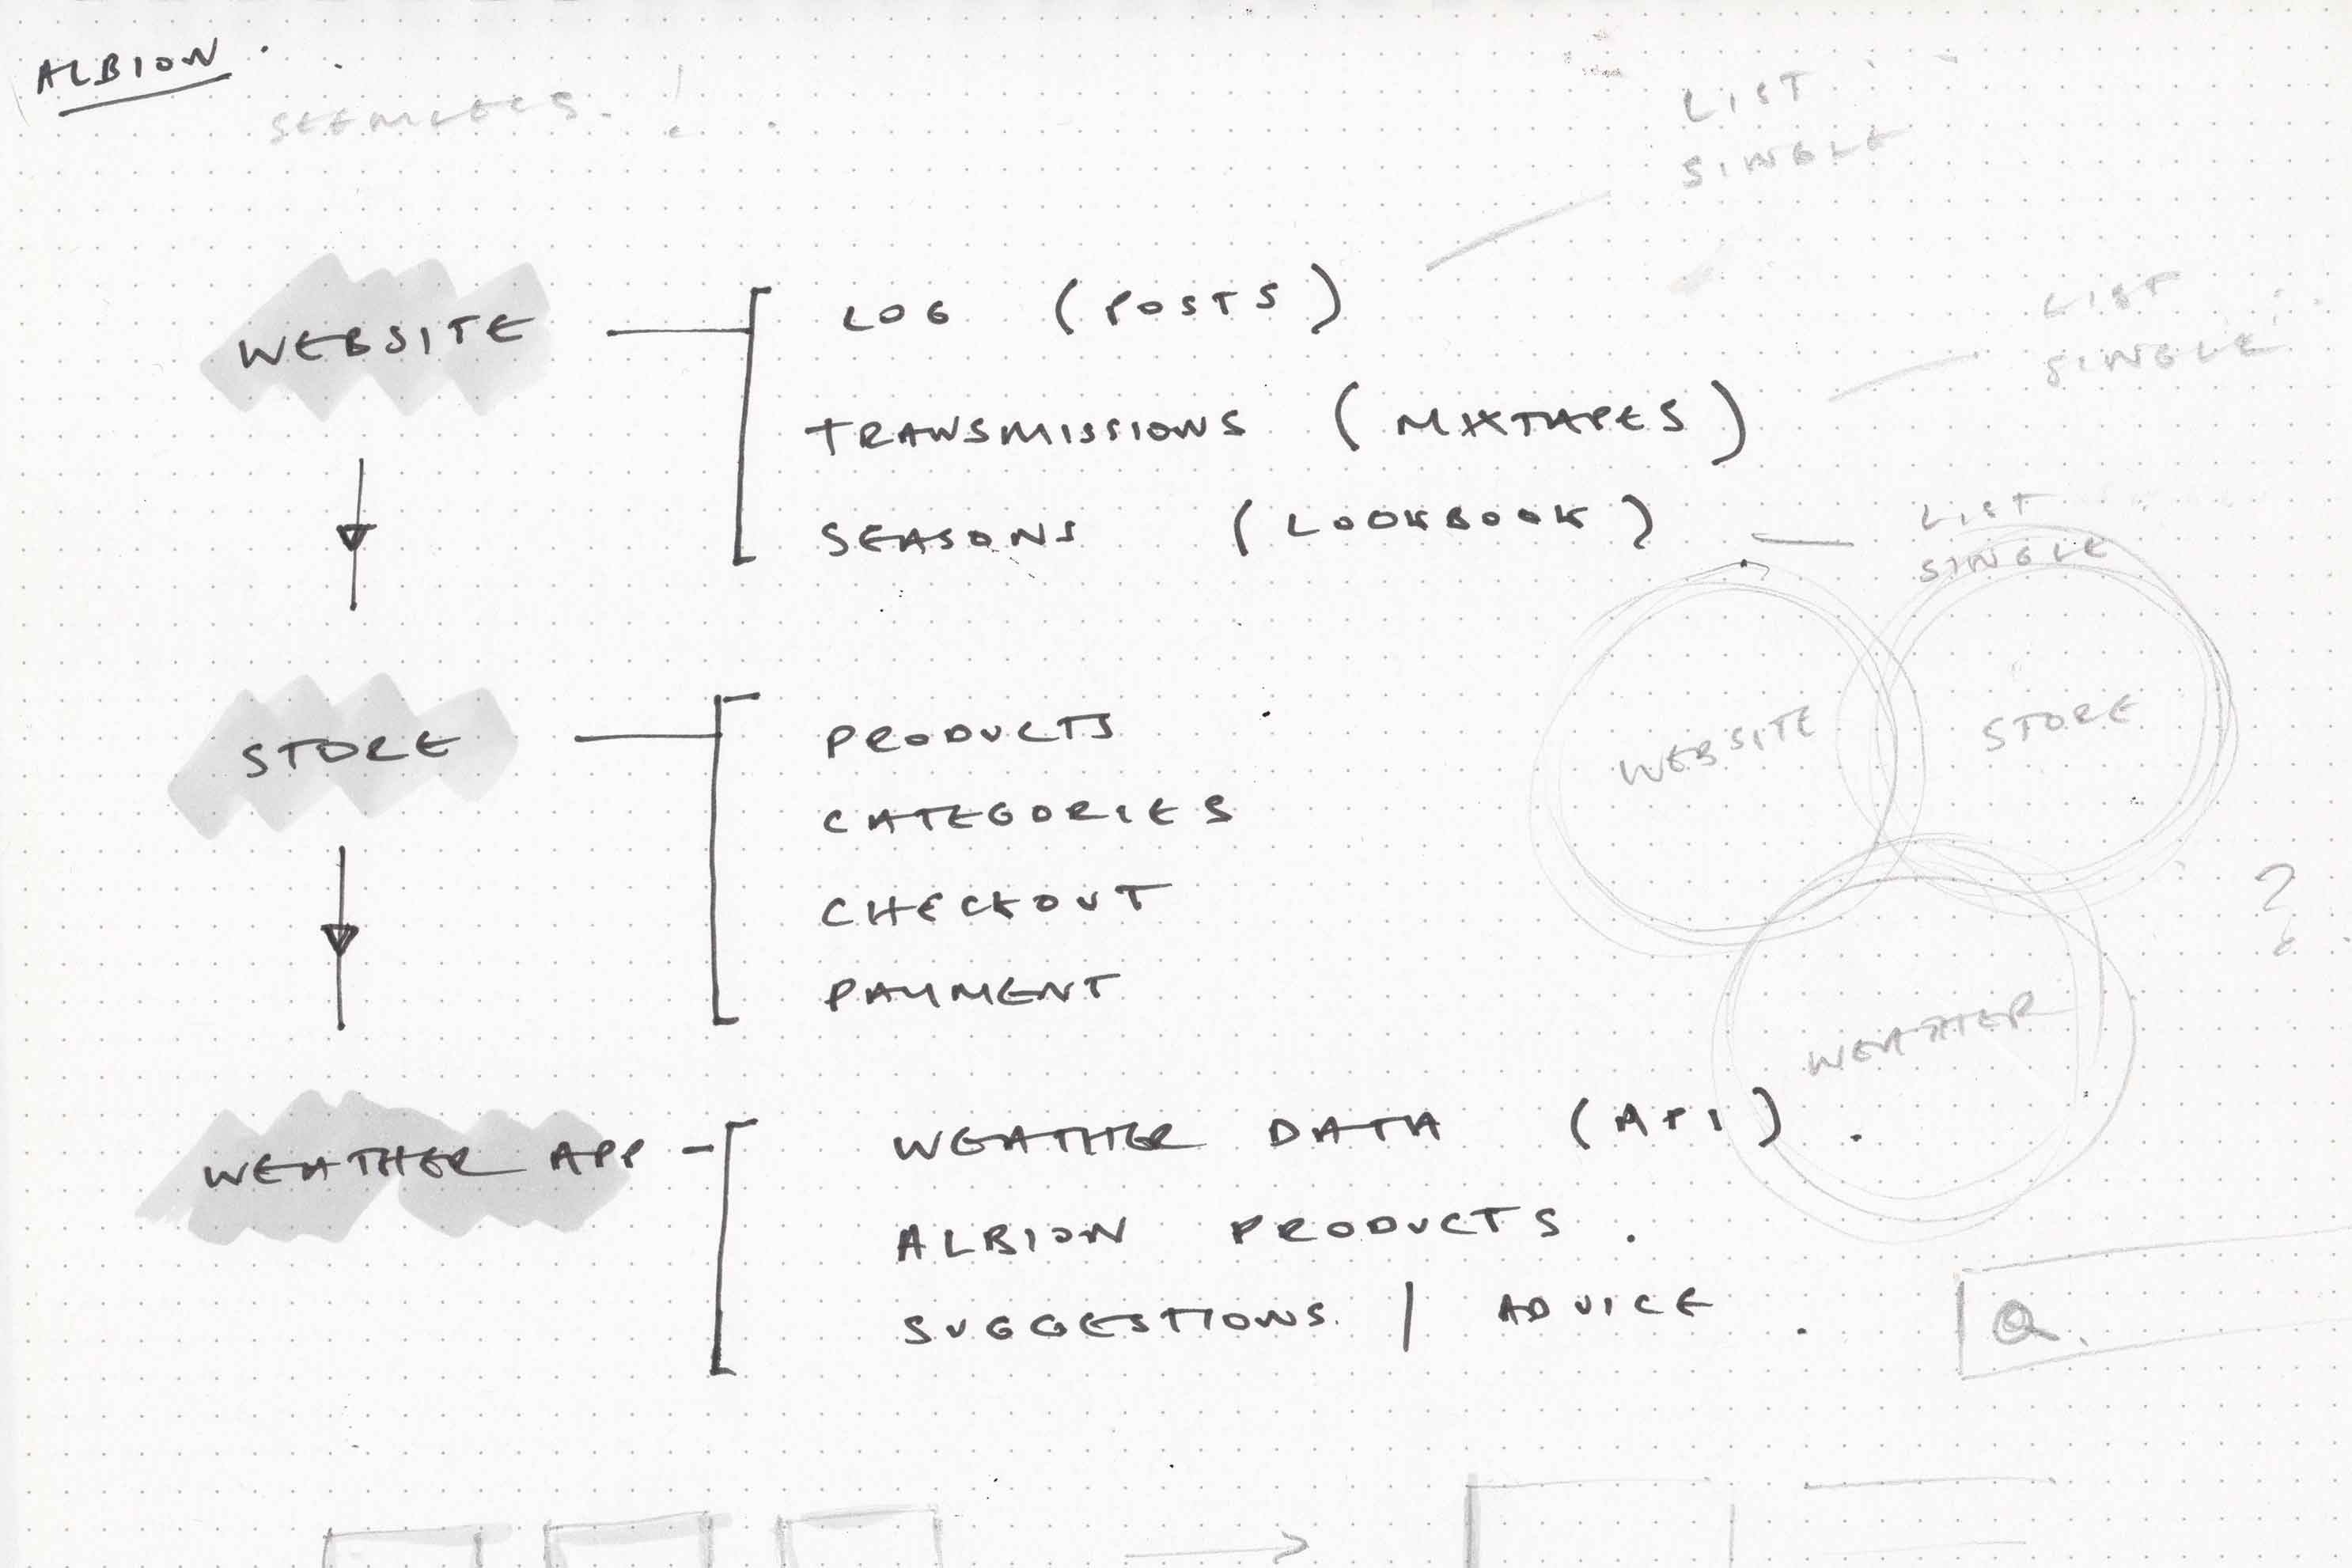 ALBION
SEEMLESS.
LIST
SINGLE
WEBSITE
LOG (POSTS)
TRANSMISSIONS (MIXTAPES)
SEASONS (LOOKBOOK)
LIST
SINGLE
LIST
SINGLE
STORE
PRODUCTS
CATEGORIES
CHECKOUT
PAYMENT
WEBSITE
STORE
WEATHER
?
WEATHER APP
WEATHER DATA (API).
ALBION PRODUCTS.
SUGGESTIONS / ADVICE.